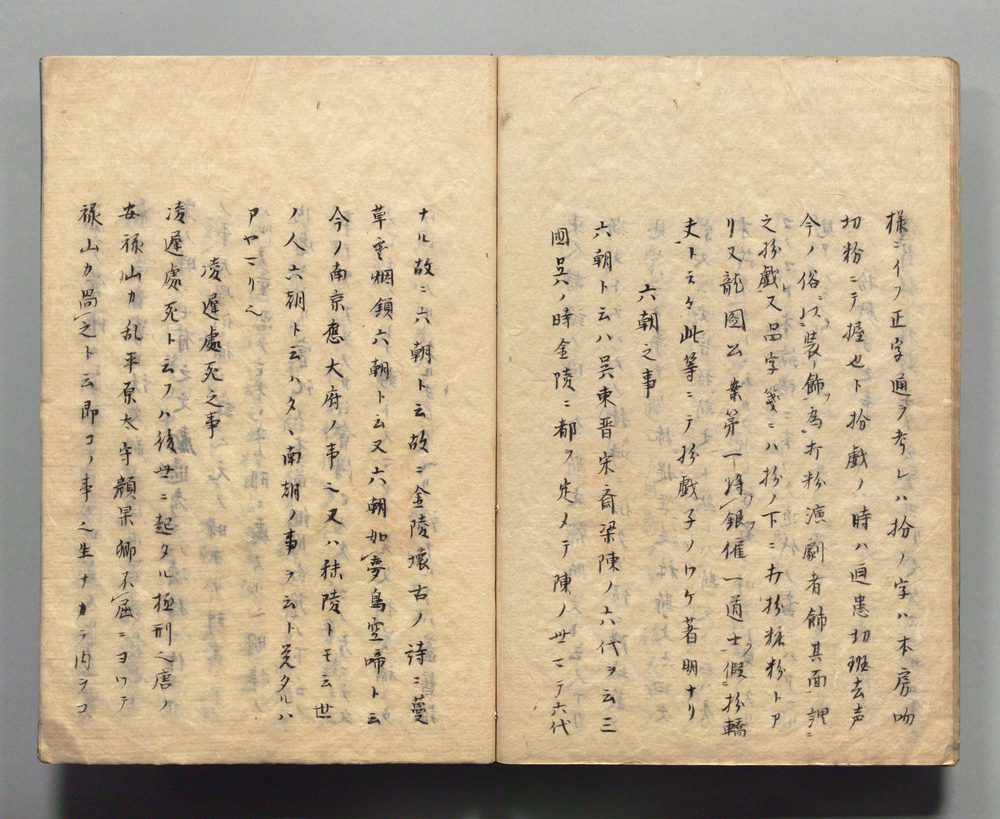 様ニイフ正字通ヲ考レハ扮ノ字ハ本房吻
切粉ニテ握也ト扮戯ノ時ハ逋患切班去声
今ノ俗以装飾為打扮演劇者飾其面謂
之扮戯又品字箋ニハ扮ノ下ニ打扮粧粉トア
リ又龍図公案第一将銀僱一道士假扮轎
夫トス々此等ニテ扮戯子ノワケ著明ナリ
六朝之事
六朝ト云ハ呉東晋宋斎梁陳ノ六代ヲ云三
國呉ノ時金陵ニ都ヲ定メテ陳ノ世マテ六代
ナル故ニ六朝ト云故ニ金陵壊古ノ詩ニ蔓
草寒烟鎖六朝ト云又六朝如夢鳥空啼ト云
今ノ南京應大府ノ事ニ又ハ秣陵トモ云世
ノ人六朝ト云ハタヽ南朝ノ事ヲ云ト覚タルハ
アヤマリ也
凌遲處死之事
凌遲處死ト云フハ後世ニ起タル極刑也唐ノ
安禄山カ乱平原太守顔杲郷不屈ニヨツテ
禄山カ咼之ト云即コノ事也生ナカラ肉ヲコ